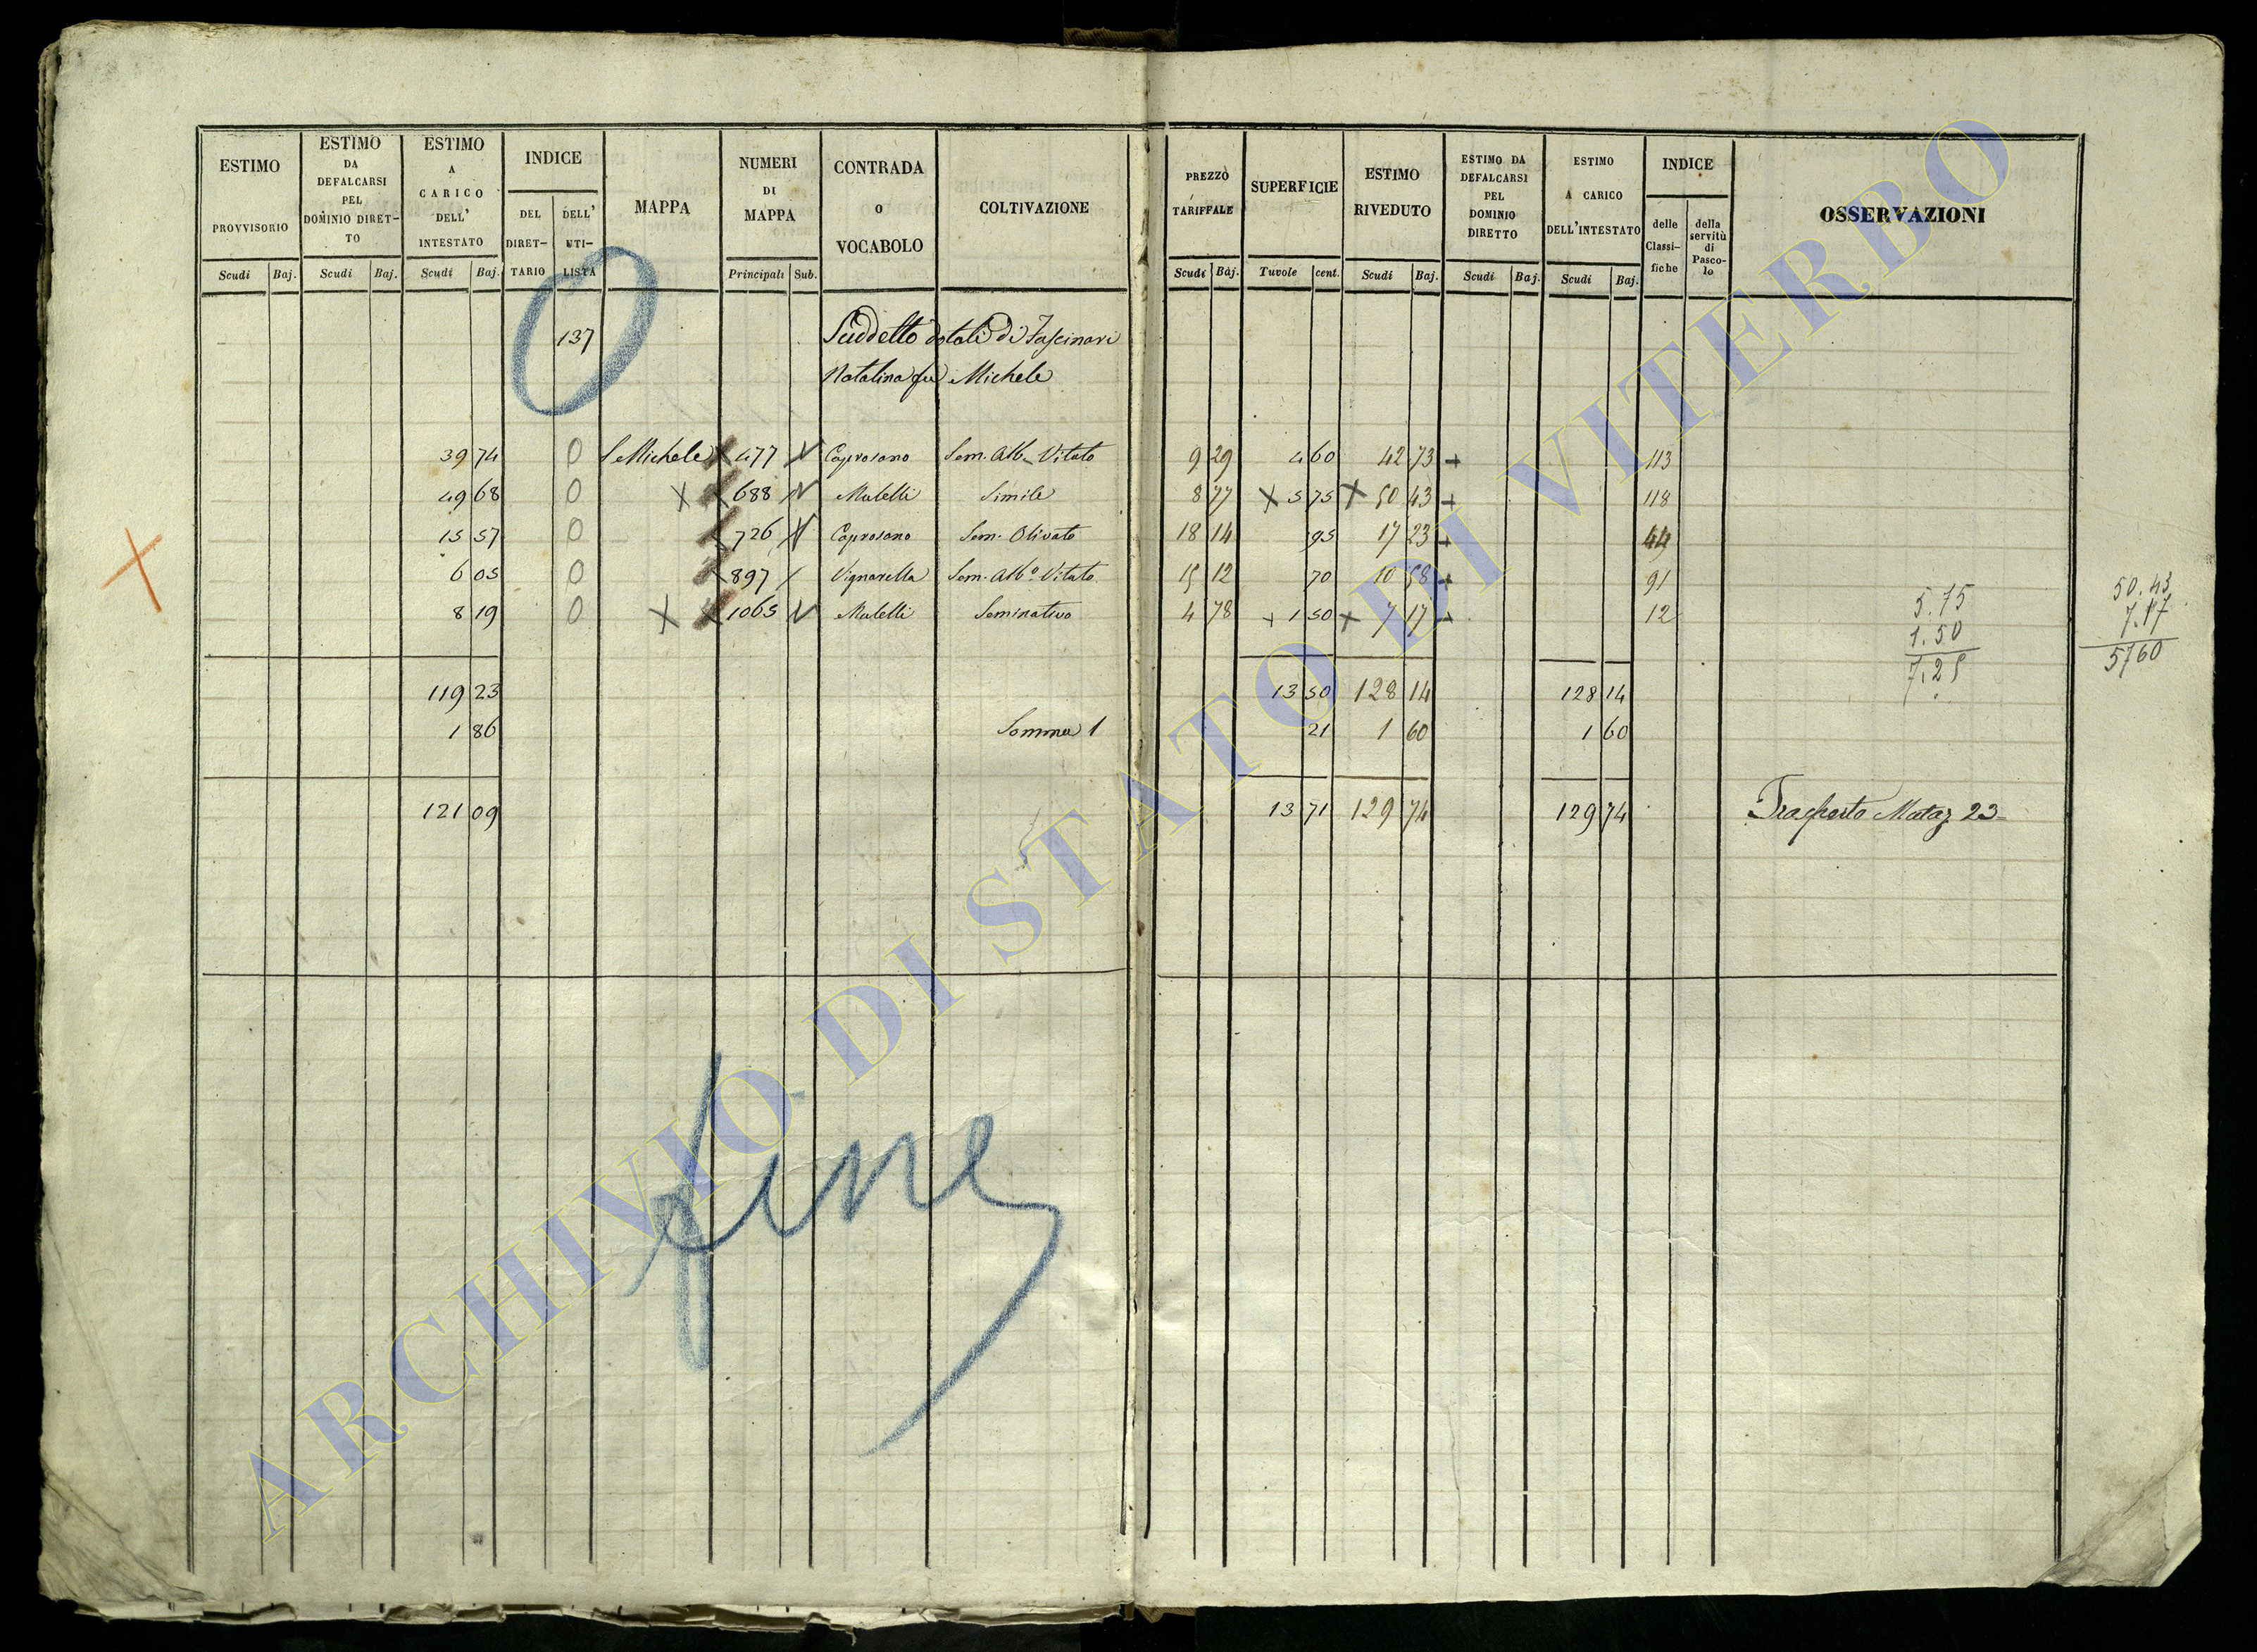 ESTIMO PROVVISORIO Scudi Baj.
ESTIMO DA DEFALCARSI PEL DOMINIO DIRET- TO Scudi Baj.
ESTIMO A CARICO DELL' INTESTATO Scudi Baj.
INDICE DEL DIRET- TARIO DELL' UTI- LISTA
MAPPA
NUMERI DI MAPPA Principali Sub.
CONTRADA O VOCABOLO
COLTIVAZIONE
PREZZO TARIFFALE Scudi Baj.
SUPERFICIE Tavole cent.
ESTIMO RIVEDUTO Scudi Baj.
ESTIMO DA DEFALCARSI PEL DOMINIO DIRETTO Scudi Baj.
ESTIMO A CARICO DELL'INTESTATO Scudi Baj.
INDICE delle Classi- fiche della servitù di Pasco- lo
OSSERVAZIONI
137 Suddetto dotali di Fascinari
Natalina fu Michele
39 74 0 S. Michele 477 Caprosano Sem. Alb. Vitato 9 29 4 60 42 73 113
49 68 0 X 688 Muletti Simile 8 77 X 5 75 X 50 43 118
15 57 0 726 Caprosano Sem. Olivato 18 14 95 17 23 44
6 05 0 897 Vignarella Sem. Alb.o Vitato 15 12 70 10 58 91
8 19 0 X 1065 Muletti Seminativo 4 78 + 1 50 + 7 17 12
5.75
1.50
7.25
50.43
7.17
5760
119 23 13 50 128 14 128 14
1 86 Somma 1 21 1 60 1 60
121 09 13 71 129 74 129 74 Trasporto Mataz 23
fine
ARCHIVIO DI STATO DI VITERBO